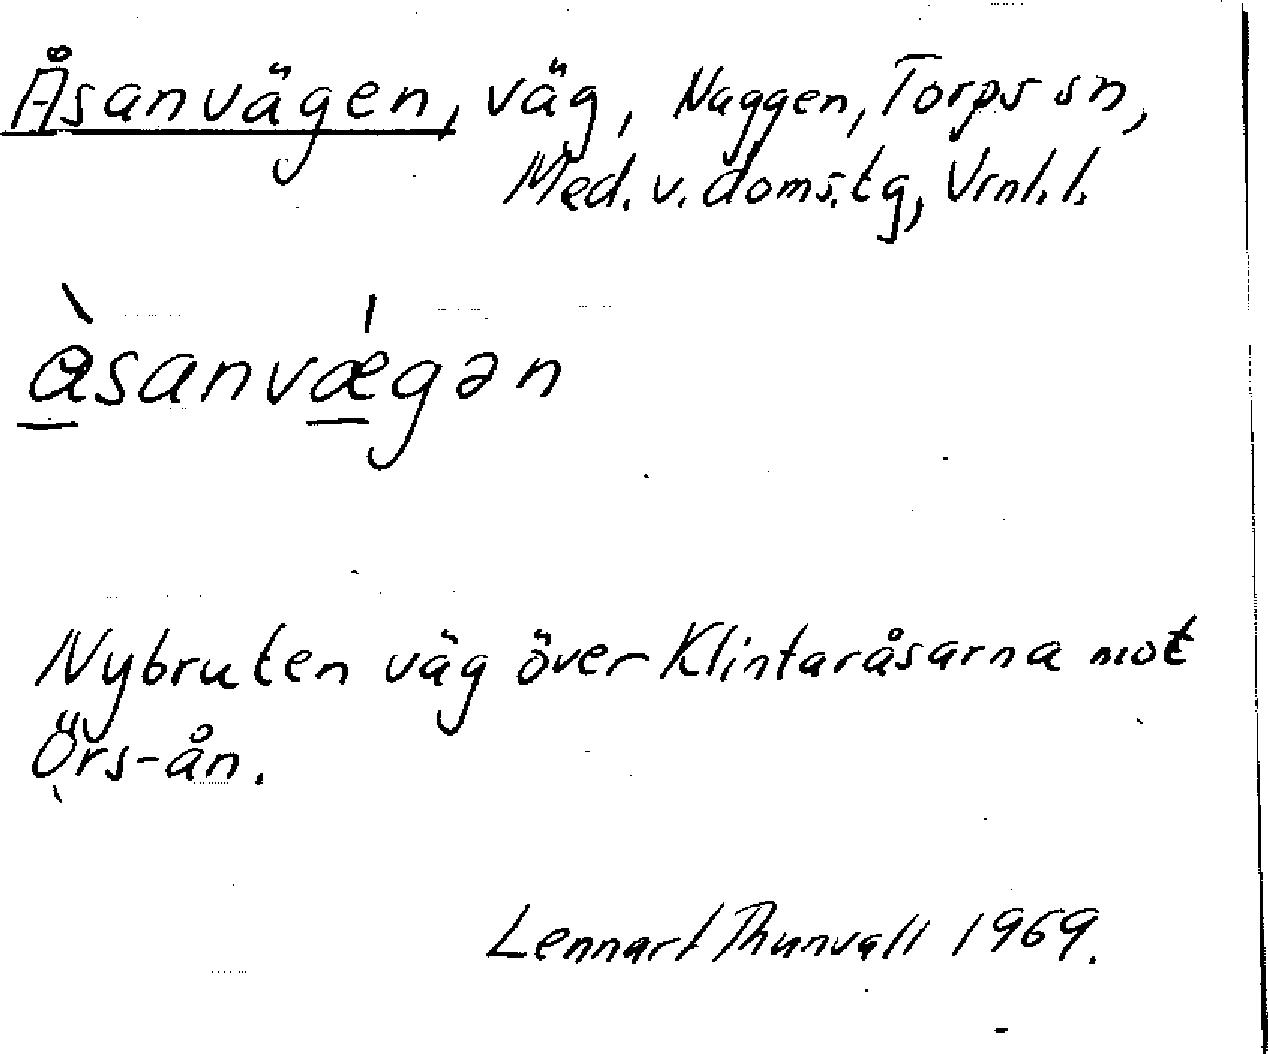 Åsanvägen, väg, Naggen, Torps sn,
Med. v. doms.tg, Vrnl. l.
åsanvægən
Nybruten väg över Klintaråsarna mot
Örs-ån.
Lennart Thunvall 1969.